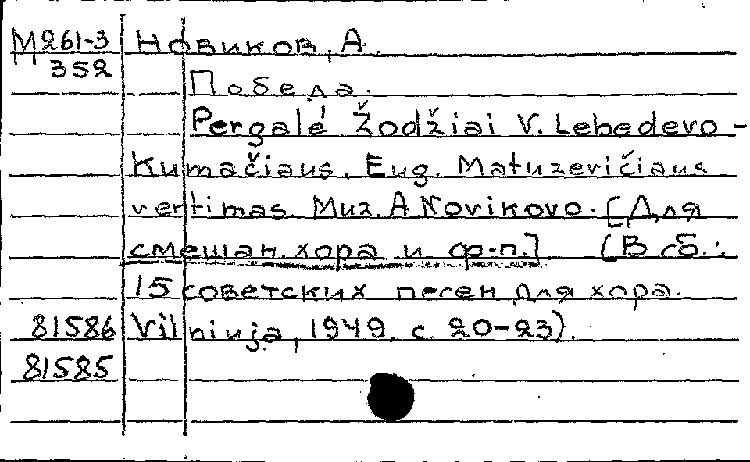 М261-3 Новиков, А.
352
Победа.
Pergalė Žodžiai V. Lebedevo-
Kumačiaus, Eug. Matuzevičiaus
vertimas. Muz. A Novikovo. [Для
смешан. хора и ф-п.] (В сб.:
15 советских песен для хора.
81586 Vilniuja, 1949. с 20-23).
81585